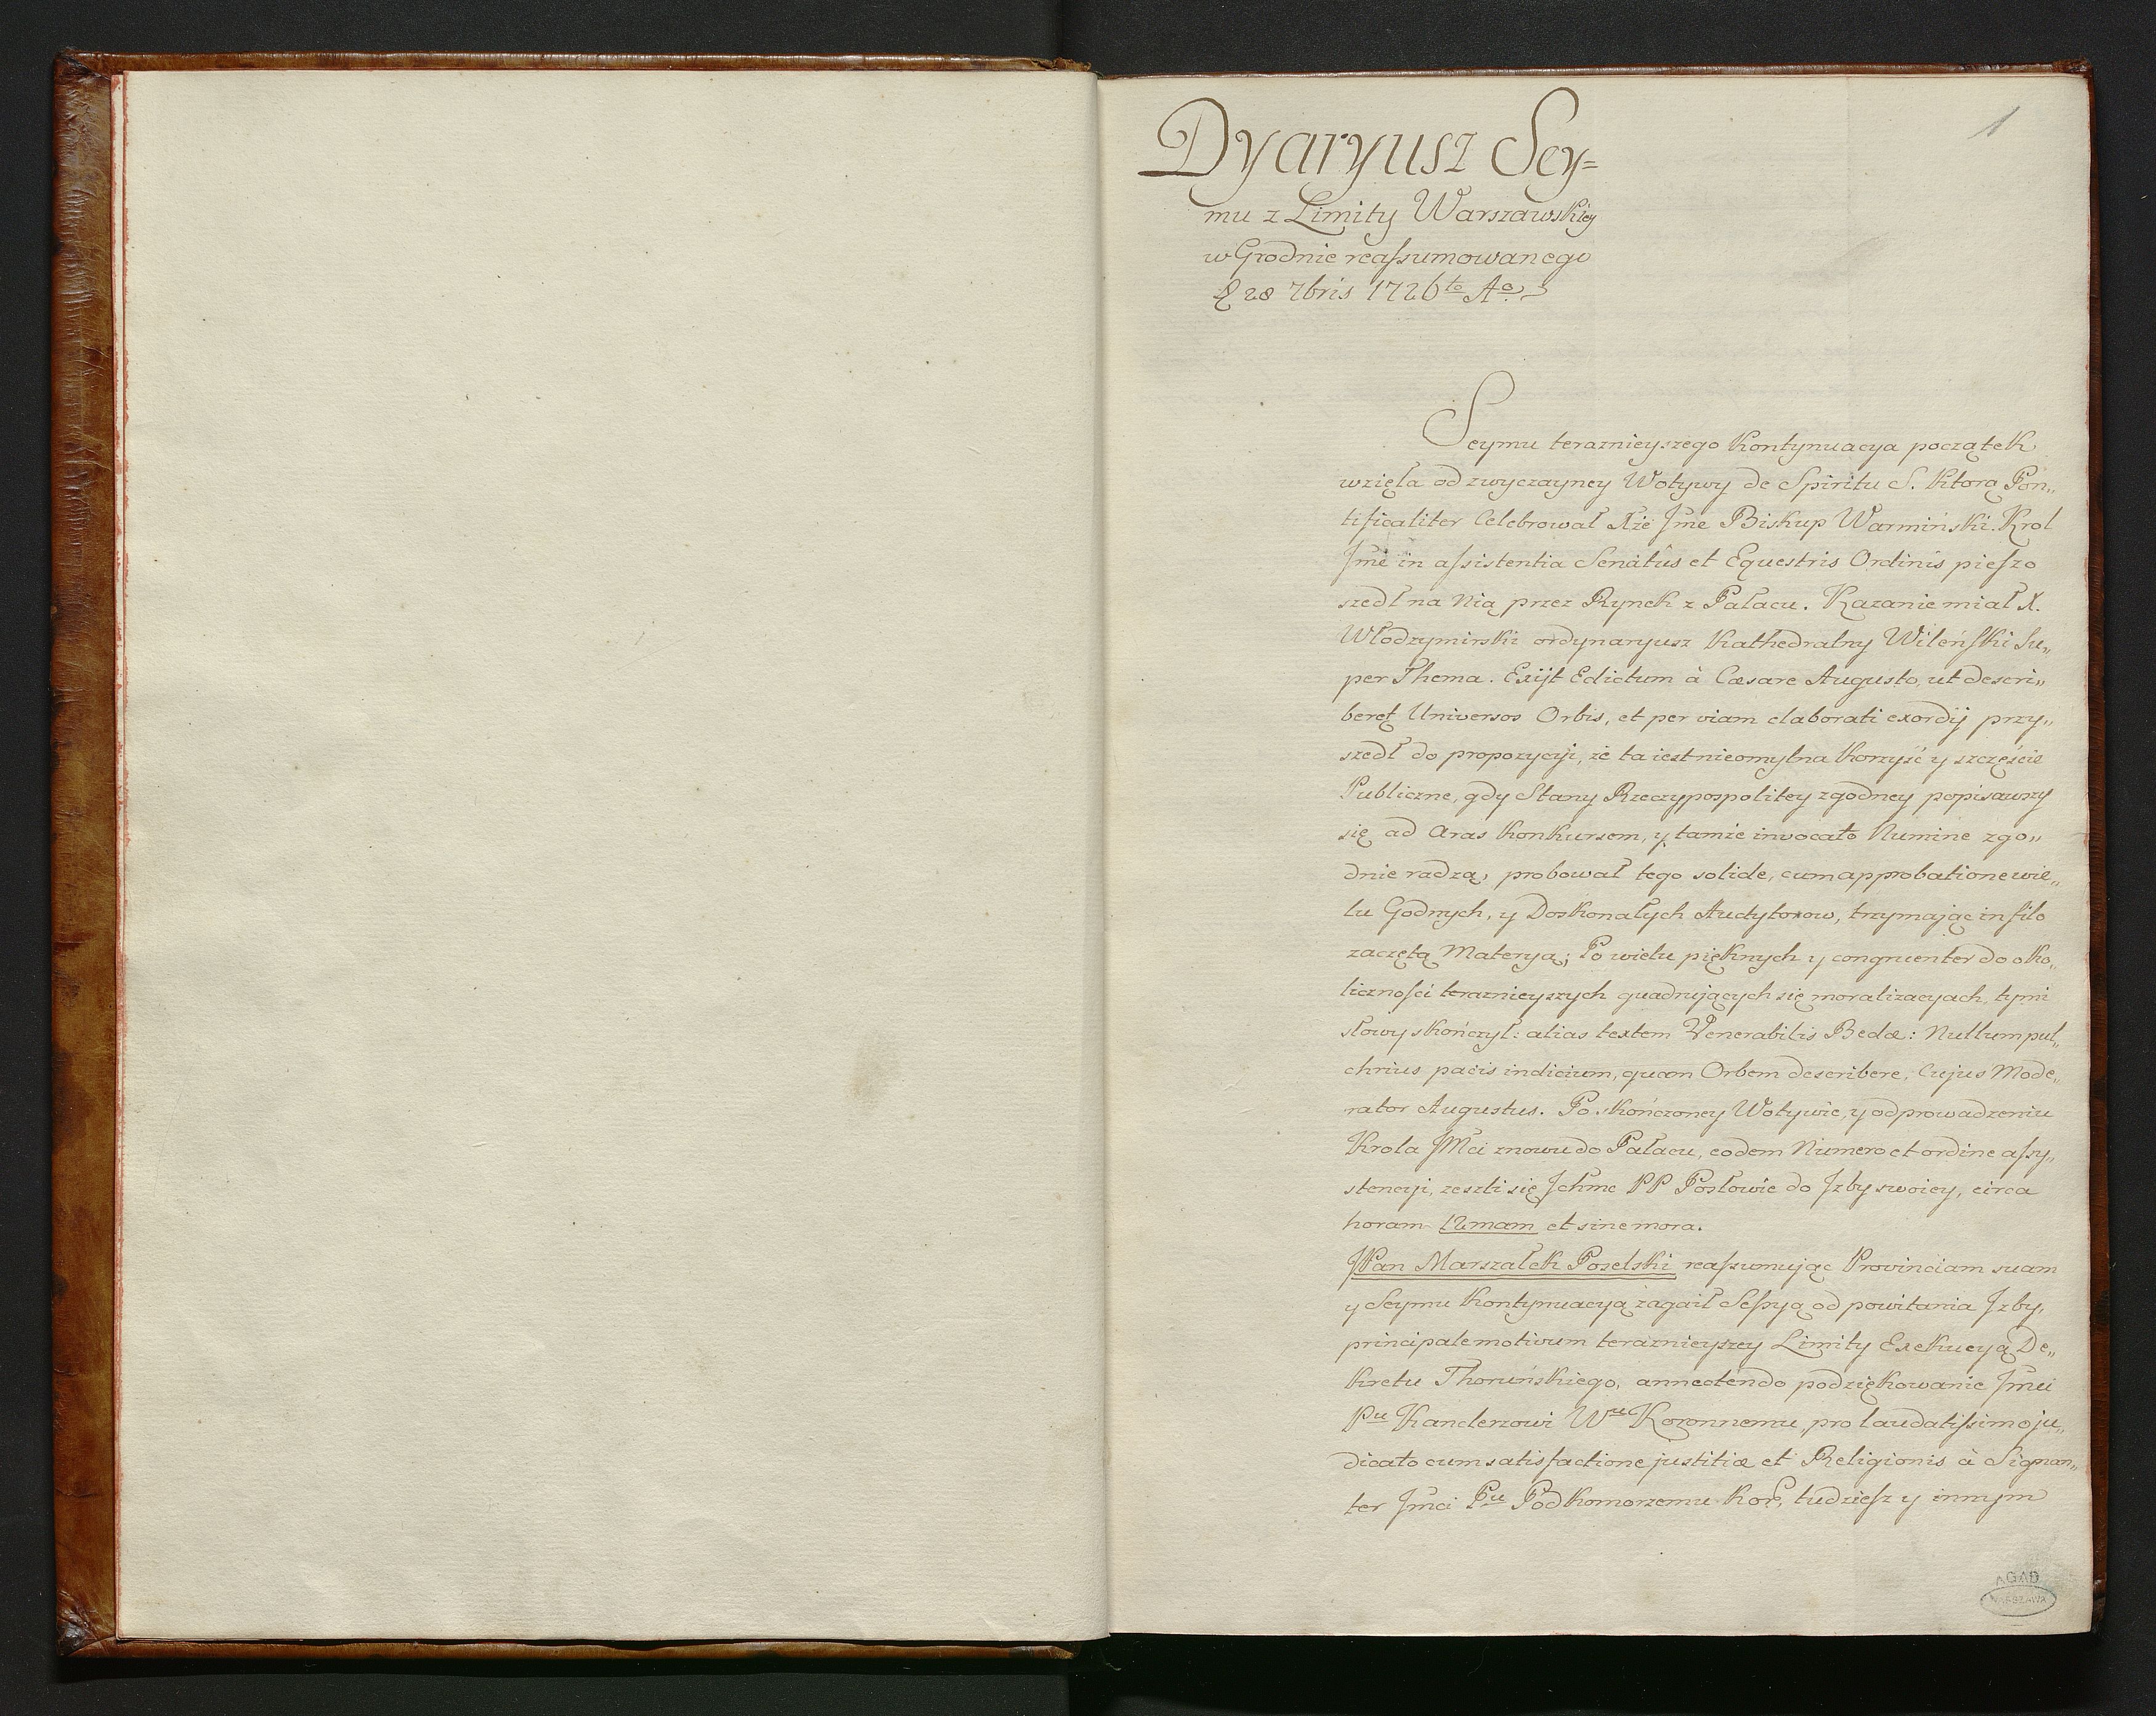 1
Dyaryusz Sey=
mu z Limity Warszawskiey
w Grodnie reaſsumowanego
28 7bris 1726to Ao
Seymu teraznieyszego Kontynuacya początek
wzięła od zwyczayney Wotywy de Spiritu S. Ktorą Pon„
tificaliter Celebrował Xże Jmć Biskup Warmiński. Krol
Jmć in aſsistentia Senatûs et Equestris Ordinis pieſzo
szedł na Nią przez Rynek z Pałacu. Kazanie miał X.
Włodzymirski ordynaryusz Kathedralny Wileńſki Su„
per Thema. Exijt Edictum à Cæsare Augusto, ut descri„
beret Universos Orbis, et per viam elaborati exordij przy„
szedł do propozycyi, że ta iest nieomylna Korzyść y szczęście
Publiczne, gdy Stany Rzeczypospolitey zgodney popisawszy
się ad Aras Konkursem, y tamże invocato Numine zgo„
dnie radzą, probował tego solide, cum approbatione wie„
lu Godnych, y Doskonałych Audytorow, trzymając in filo
zaczętą Materyą; Po wielu pięknych y congruenter do oko„
licznoſci teraznieyszych quadruiących się moralizacyach, tymi
słowy skończył: alias textem Venerabilis Bedæ: Nullum pul„
chrius pacis indicium, quam Orbem describere, Cujus Mode„
rator Augustus. Po skończoney Wotywie, y odprowadzeniu
Krola JMci znowu do Pałacu, eodem Numero et ordine aſsy„
stencyi, zeszli się Jchmć PP Posłowie do Jzby swoiey, circa
horam 12mam et sine mora.
JPan Marszałek Poselski reaſsumuiąc Provinciam suam
y Seymu Kontynuacyą zagaił Seſsyą od powitania Jzby,
principale motivum teraznieyszey Limity Exekucyą De„
kretu Thoruńskiego, annectendo podziękowanie Jmci
Pu Kanclerzowi Wu Koronnemu, pro laudatiſsimo ju„
dicato cum satisfactione justitiæ et Religionis à Signan„
ter Jmci Pu Podkomorzemu Kor, tudzieſz y innym
AGAD
WARSZAWA